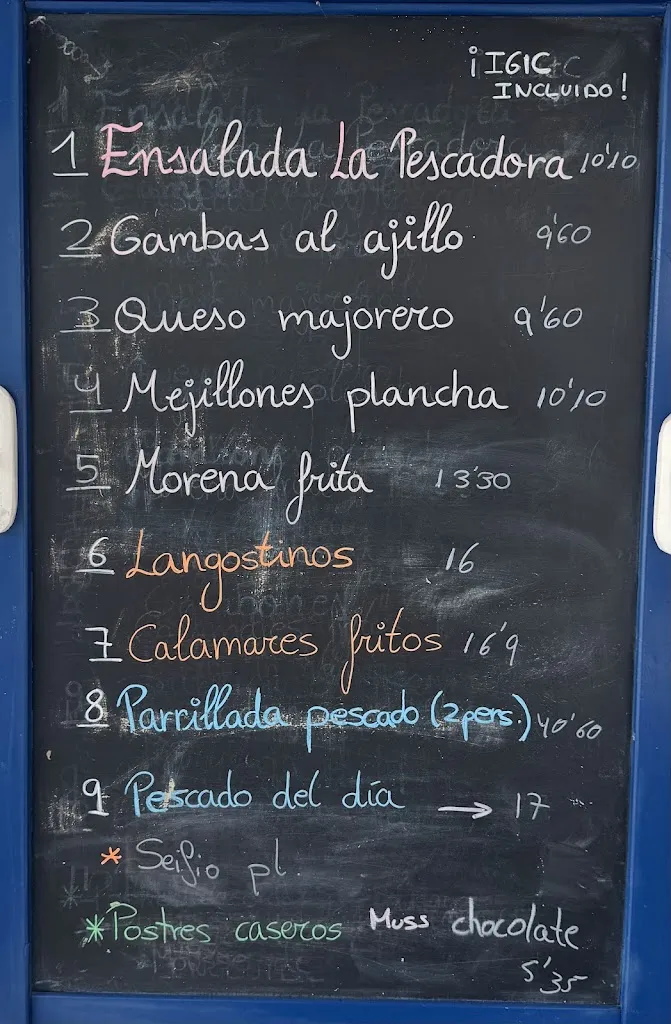 ¡IGIC
INCLUIDO!
1 Ensalada La Pescadora 10'10
2 Gambas al ajillo 9'60
3 Queso majorero 9'60
4 Mejillones plancha 10'10
5 Morena frita 13'30
6 Langostinos 16
7 Calamares fritos 16'9
8 Parrillada pescado (2pers.) 40'60
9 Pescado del día → 17
* Seifio pl.
* Postres caseros Muss chocolate
5'35